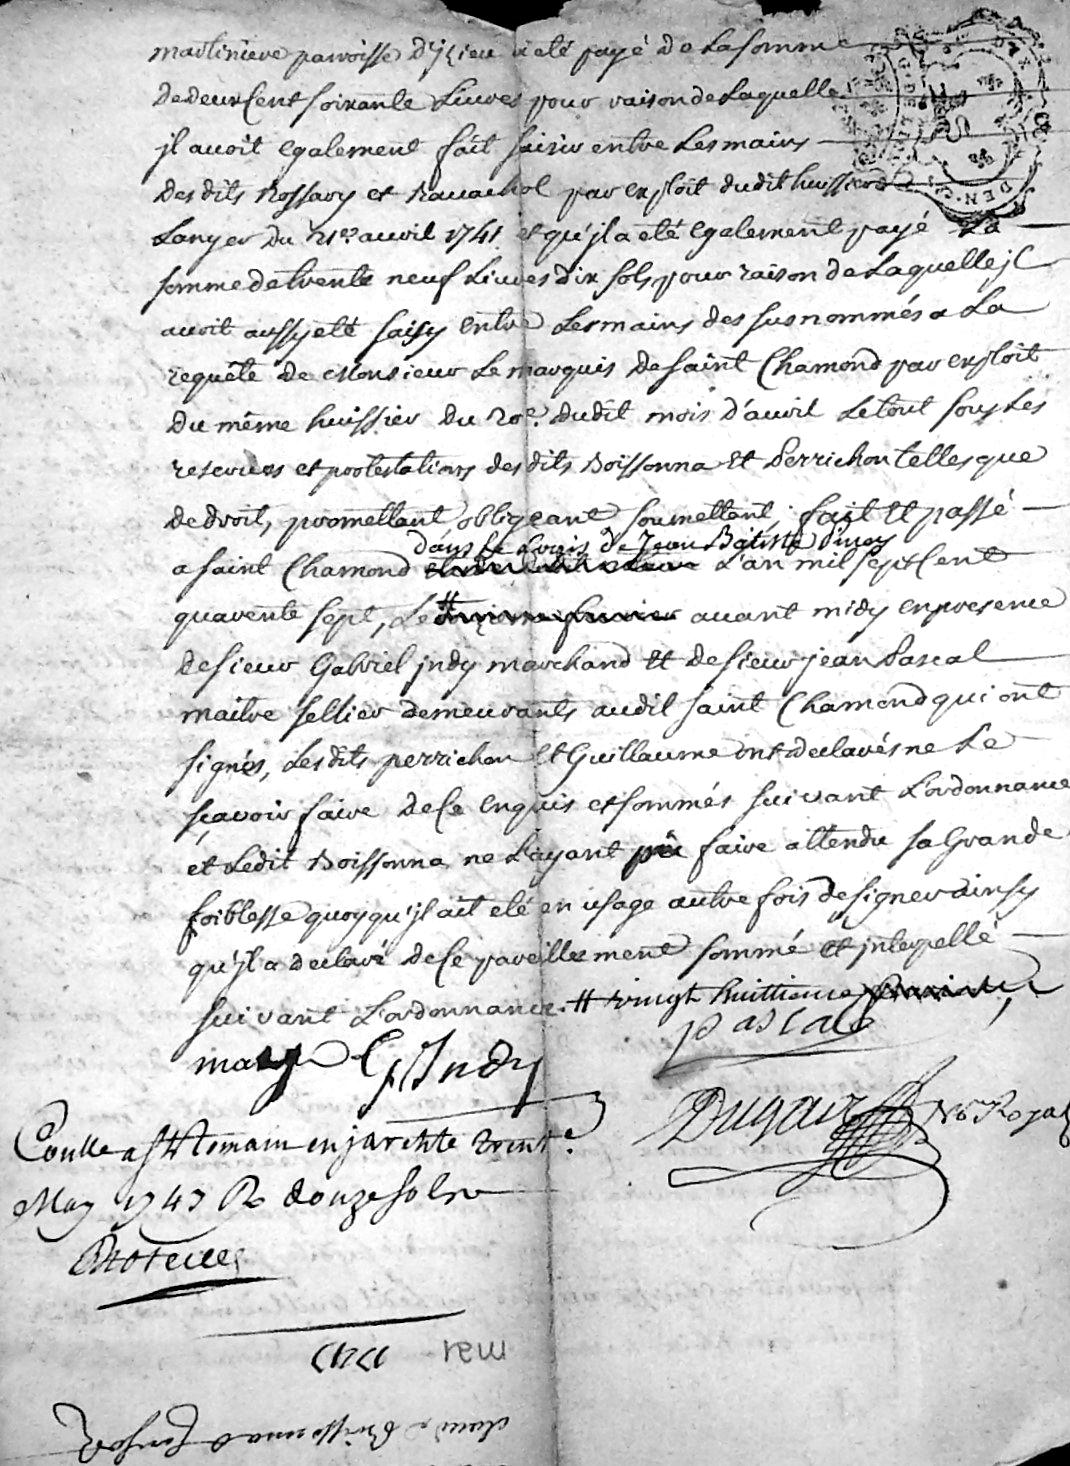 martiniere parroisse d'jzieu a eté payé de La somme
de deux Cent soixante Livres pour raison de Laquelle
jl auoit egalement fait saisir entre Les mains
des dits Rossary et Rauachol par exploit dudit huissier
Lanyer du 21e auril 1741 et qu'jl a eté egalement payé La
somme de trente neuf Livres dix sols pour raison de Laquelle jl
auoit aussy eté saisy entre Les mains des susnommés a La
requête de Monsieur Le marquis de saint Chamond par exploit
du même huissier du 20e. dudit mois d'auril Le tout sous Les
reserues et protestations des dits Boissonna et Perrichon telles que
de droit, promettant obligeant soumettant, fait et passé
dans Le Logis de Jean Batiste
a saint Chamond L'an mil sept Cent
quarente sept, Le # auant midy en presence
de sieur Gabriel jndy marchand et de sieur jean Pascal
maitre sellier demeurants audit saint Chamond qui ont
signés, Les dits perrichon et Guillaume ont declarés ne Le
sçavoir faire de Ce enquis et sommés suivant L'ordonnance
et Ledit Boissonna ne L'ayant pû faire attendu sa Grande
foiblesse quoyqu'jl ait eté en usage autre fois de signer ainsy
qu'jl a declaré de Ce pareillement sommé et jnterpellé
suivant L'ordonnance. # vingt huittieme
may G Jndy
Pascal
Dugair Nore Royal
Conlle a St Chamond trente
May 1747 R douze sols